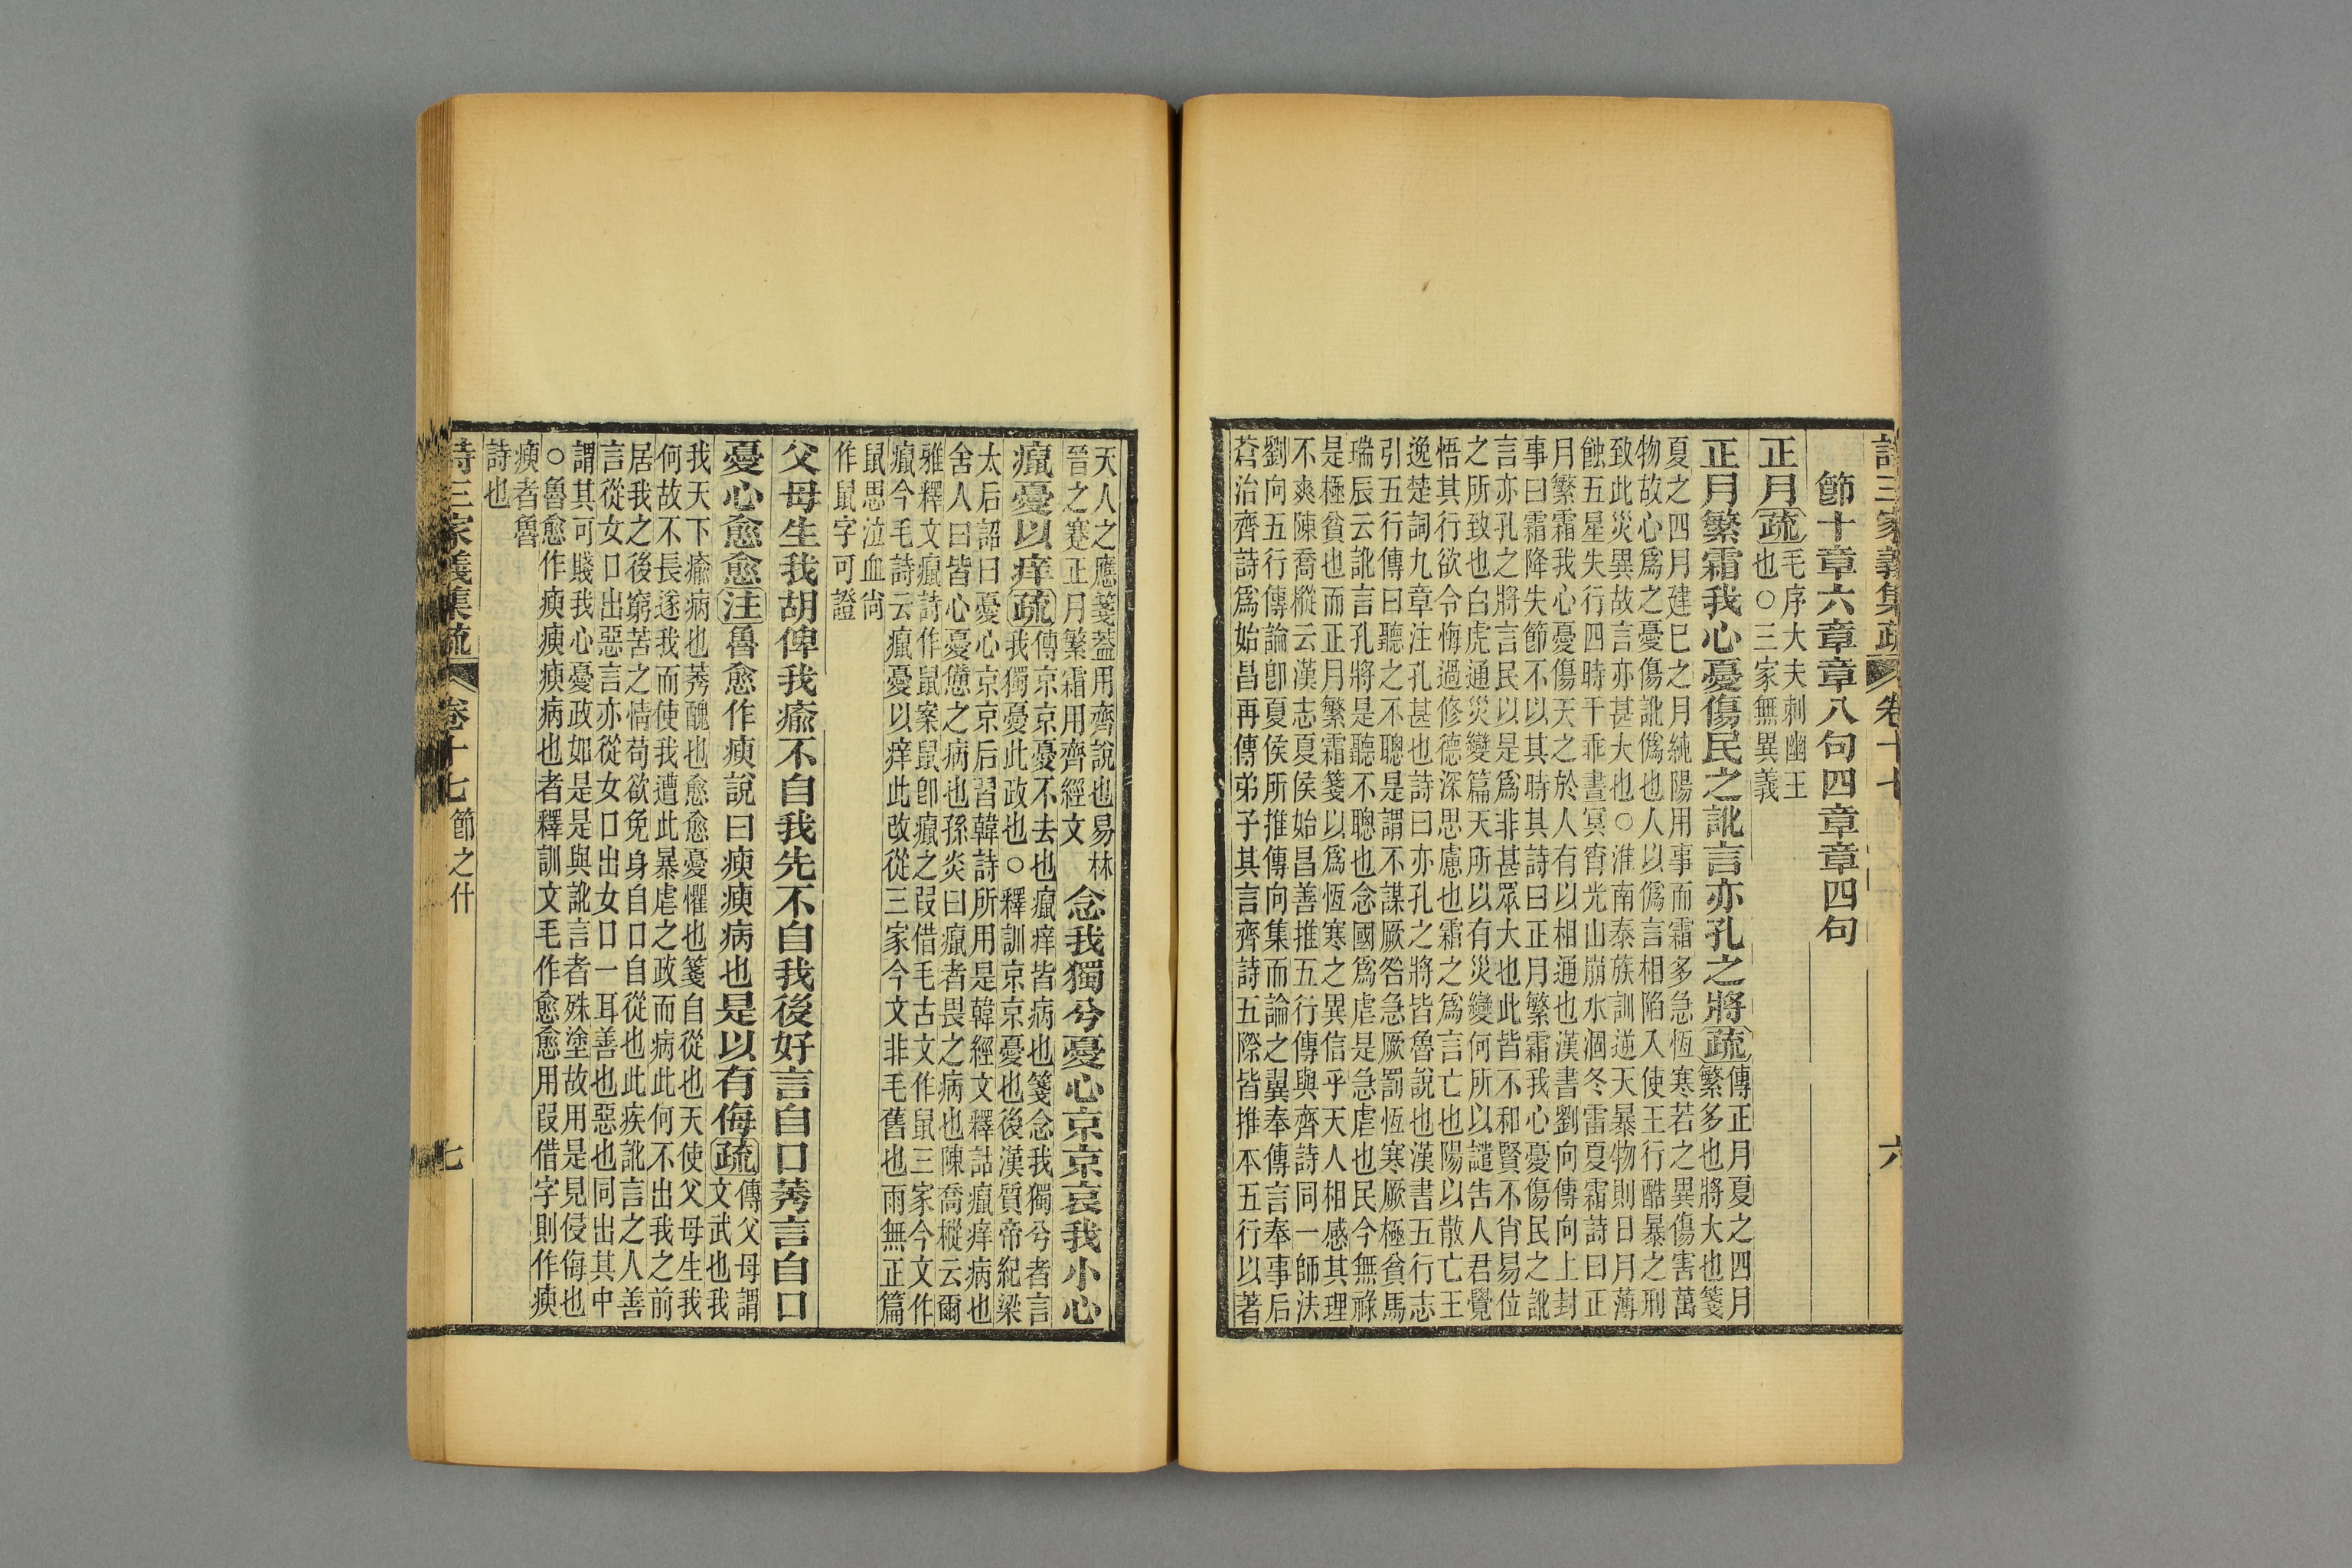 詩三家義集疏 卷十七 六
節十章六章章八句四章章四句
正月疏毛序大夫刺幽王
也○三家無異義
正月繁霜我心憂傷民之訛言亦孔之將疏傳正月夏之四月
繁多也將大也箋
夏之四月建巳之月純陽用事而霜多急恆寒若之異傷害萬
物故心爲之憂傷訛僞也人以僞言相陷入使王行酷暴之刑
致此災異故言亦甚大也○淮南泰族訓逆天暴物則日月薄
蝕五星失行四時干乖晝冥宵光山崩水涸冬雷夏霜詩曰正
月繁霜我心憂傷天之於人有以相通也漢書劉向傳向上封
事曰霜降失節不以其時其詩曰正月繁霜我心憂傷民之訛
言亦孔之將言民以是爲非甚眾大也此皆不和賢不肖易位
之所致也白虎通災變篇天所以有災變何所以譴告人君覺
悟其行欲令悔過修德深思慮也霜之爲言亡也陽以散亡王
逸楚詞九章注孔甚也詩曰亦孔之將皆魯說也漢書五行志
引五行傳曰聽之不聰是謂不謀厥咎急厥罰恆寒厥極貧馬
瑞辰云訛言孔將是聽不聰也念國爲虐是急虐也民今無祿
是極貧也而正月繁霜箋以爲恆寒之異信乎天人相感其理
不爽陳喬樅云漢志夏侯始昌善推五行傳與齊詩同一師法
劉向五行傳論卽夏侯所推傳向集而論之翼奉傳言奉事后
蒼治齊詩爲始昌再傳弟子其言齊詩五際皆推本五行以著
天人之應箋蓋用齊說也易林
晉之蹇正月繁霜用齊經文
念我獨兮憂心京京哀我小心
癙憂以痒疏傳京京憂不去也癙痒皆病也箋念我獨兮者言
我獨憂此政也○釋訓京京憂也後漢質帝紀梁
太后詔曰憂心京京后習韓詩所用是韓經文釋詁癙痒病也
舍人曰皆心憂憊之病也孫炎曰癙者畏之病也陳喬樅云爾
雅釋文癙詩作鼠案鼠卽癙之叚借毛古文作鼠三家今文作
癙今毛詩云癙憂以痒此改從三家今文非毛舊也雨無正篇
鼠思泣血尙
作鼠字可證
父母生我胡俾我瘉不自我先不自我後好言自口莠言自口
憂心愈愈注魯愈作瘐說曰瘐瘐病也是以有侮疏傳父母謂
文武也我
我天下瘉病也莠醜也愈愈憂懼也箋自從也天使父母生我
何故不長遂我而使我遭此暴虐之政而病此何不出我之前
居我之後窮苦之情苟欲免身自口自從也此疾訛言之人善
言從女口出惡言亦從女口出女口一耳善也惡也同出其中
謂其可賤我心憂政如是是與訛言者殊塗故用是見侵侮也
○魯愈作瘐瘐瘐病也者釋訓文毛作愈愈用叚借字則作瘐
瘐者魯
詩也
詩三家義集疏 卷十七 節之什 七